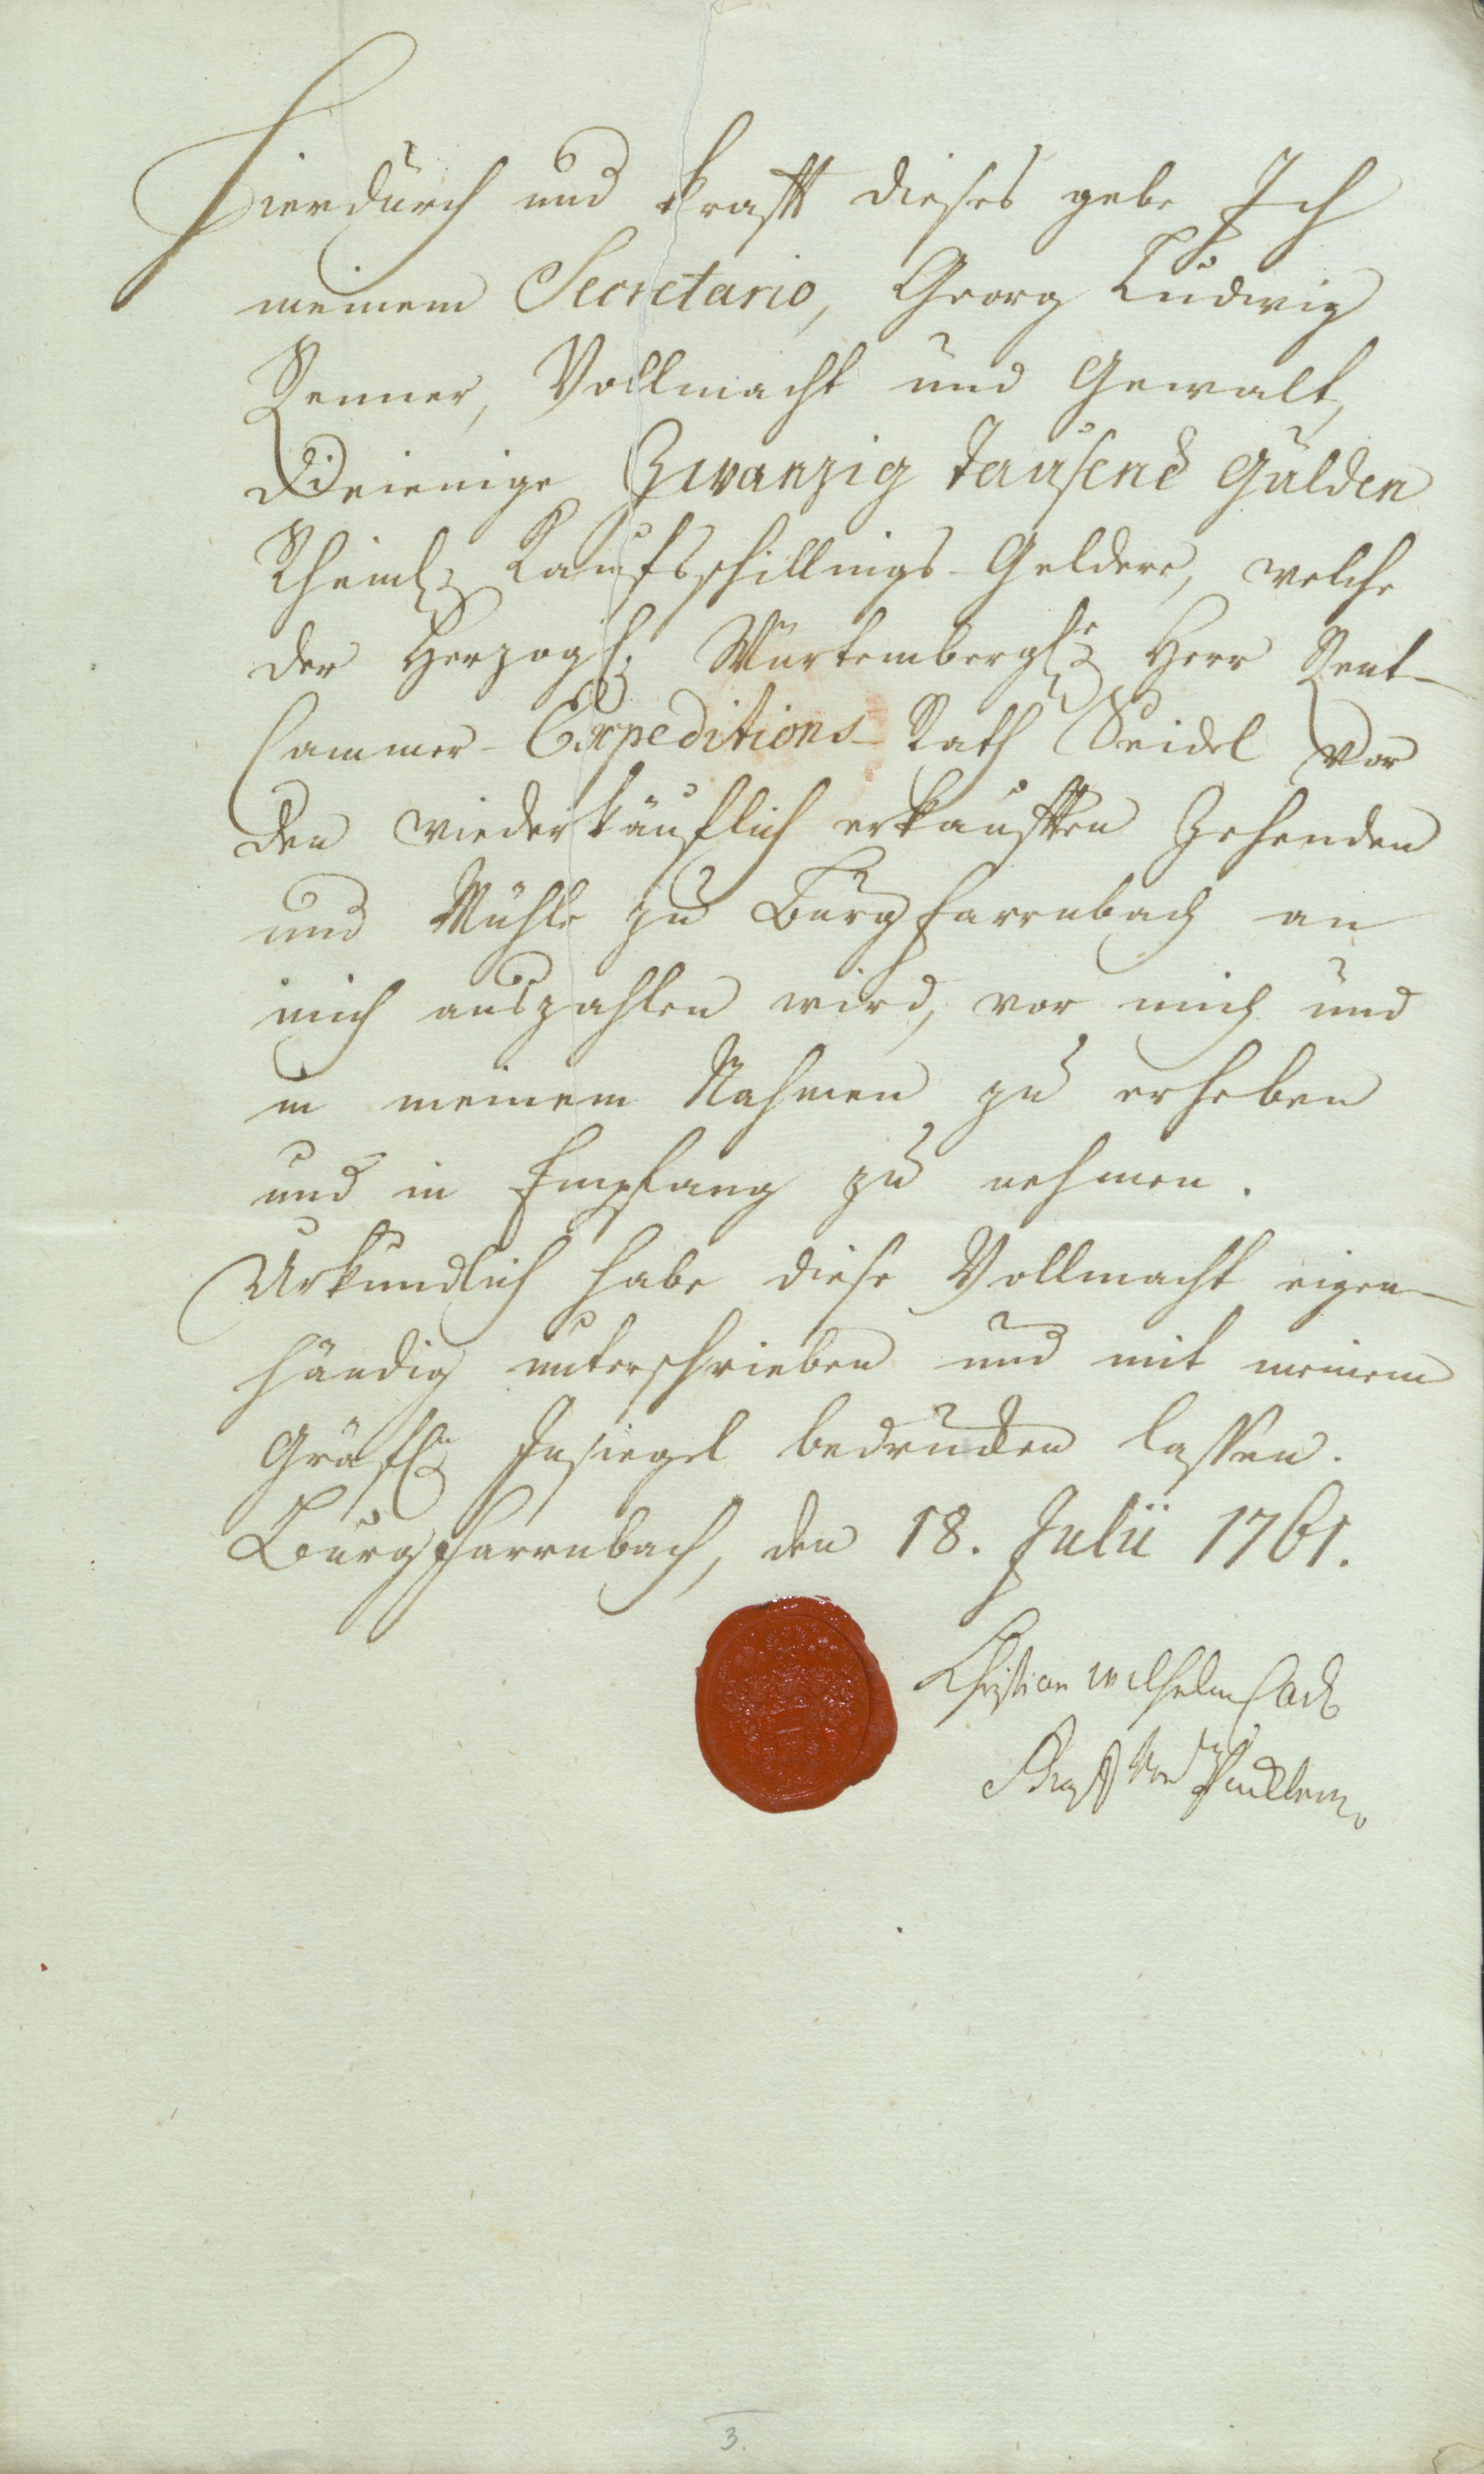 Hierdurch und krafft dieses gebe Ich
meinem Secretario, Georg Ludwig
Renner, Vollmacht und Gewalt,
Dieienige Zwanzig tausend Gulden
Rheinl: Kaufsschillings-Geldere, welche
der Herzogl: Würtembergl:e Herr Rent-
Cammer-Expeditions-Rath Seidel vor
den wiederkäuflich erkaufften Zehenden
und Mühle zu Burgfarrnbach an
mich auszahlen wird, vor mich und
in meinem Nahmen zu erheben
und in Empfang zu nehmen.
Urkundlich habe diese Vollmacht eigen-
händig unterschrieben und mit meinem
Gräfl: Insiegel bedrucken lassen.
Burgfarrnbach, den 18. Julii 1761.
Christian Wilhelm Carl
Graff von Pückler
3.